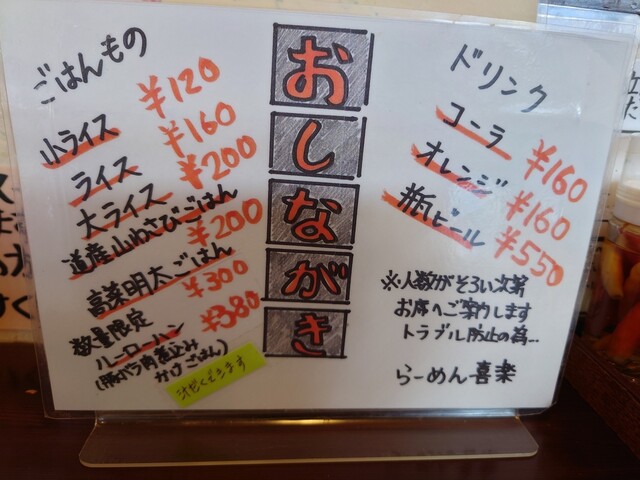 おしながき
ごはんもの
小ライス ¥120
ライス ¥160
大ライス ¥200
道産山わさびごはん ¥200
高菜明太ごはん ¥300
数量限定 ¥380
ルーローハン
(豚バラ角煮込み
かけごはん)
ドリンク
コーラ ¥160
オレンジ ¥160
瓶ビール ¥550
※人数がそろい次第
お席へご案内します
トラブル防止の為…
らーめん喜楽